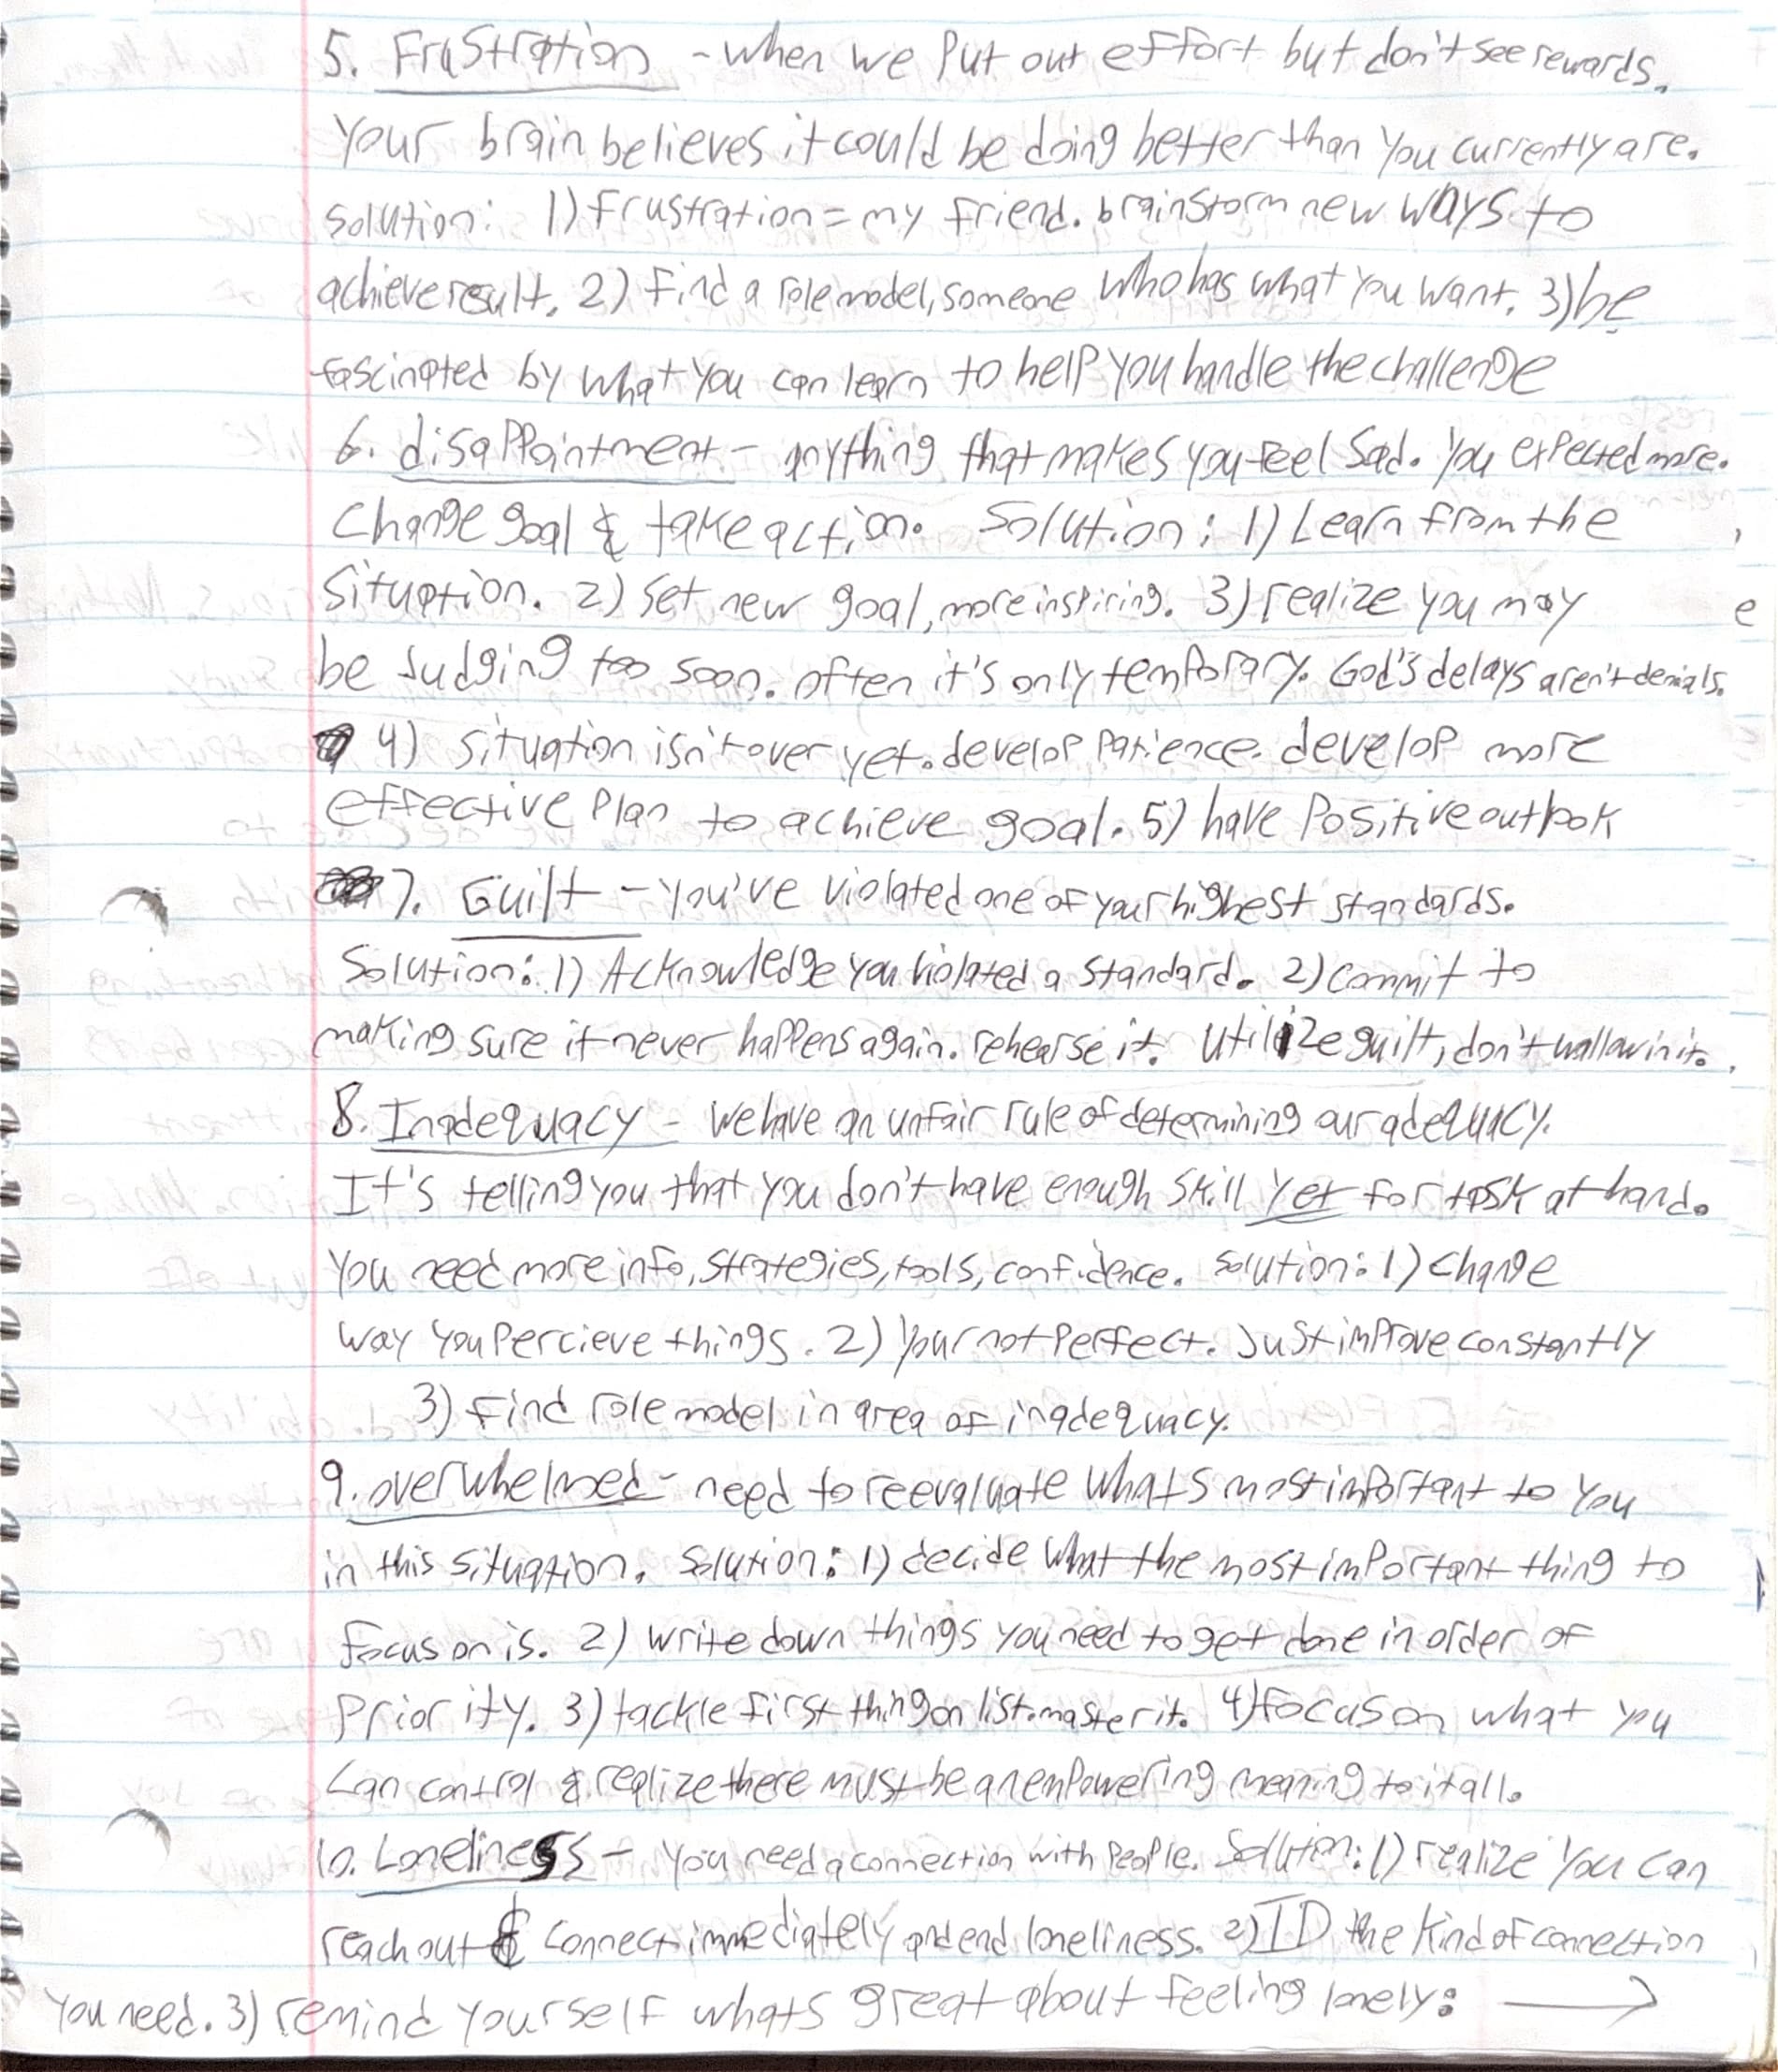 5. Frustration - when we put out effort but don't see rewards.
Your brain believes it could be doing better than you currently are.
solution: 1) frustration = my friend. brainstorm new ways to
achieve result. 2) find a role model, someone who has what you want. 3) be
fascinated by what you can learn to help you handle the challenge
6. disappointment - anything that makes you feel sad. You expected more.
Change goal & take action. Solution: 1) Learn from the
situation. 2) set new goal, more inspiring. 3) realize you may
be judging too soon. often it's only temporary. God's delays aren't denials.
4) situation isn't over yet. develop patience. develop more
effective plan to achieve goal. 5) have positive outlook
7. Guilt - you've violated one of your highest standards.
Solution: 1) Acknowledge you violated a standard. 2) commit to
making sure it never happens again. rehearse it. Utilize guilt, don't wallow in it.
8. Inadequacy - we have an unfair rule of determining our adequacy.
It's telling you that you don't have enough skill yet for task at hand.
You need more info, strategies, tools, confidence. Solution: 1) change
way you percieve things. 2) your not perfect. Just improve constantly
3) find role model in area of inadequacy.
9. overwhelmed - need to reevaluate whats most important to you
in this situation. Solution: 1) decide what the most important thing to
focus on is. 2) write down things you need to get done in order of
priority. 3) tackle first thing on list. master it. 4) focus on what you
can control & realize there must be an empowering meaning to it all.
10. Loneliness - you need a connection with people. Solution: 1) realize you can
reach out & connect immediately and end loneliness. 2) ID the kind of connection
you need. 3) remind yourself whats great about feeling lonely: →